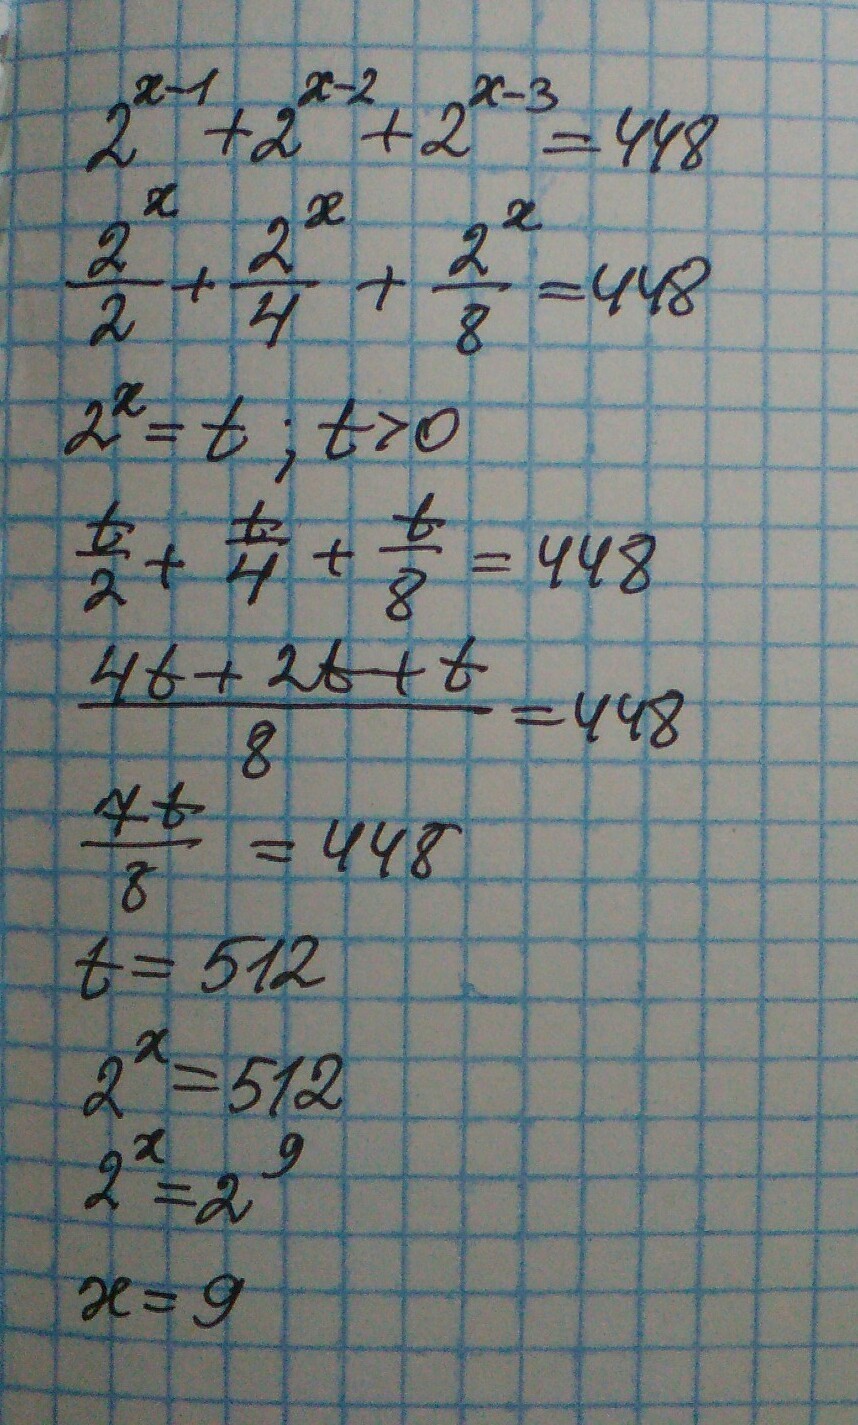 2^{x-1} + 2^{x-2} + 2^{x-3} = 448
\frac{2^x}{2} + \frac{2^x}{4} + \frac{2^x}{8} = 448
2^x = t ; t > 0
\frac{t}{2} + \frac{t}{4} + \frac{t}{8} = 448
\frac{4t + 2t + t}{8} = 448
\frac{7t}{8} = 448
t = 512
2^x = 512
2^x = 2^9
x = 9